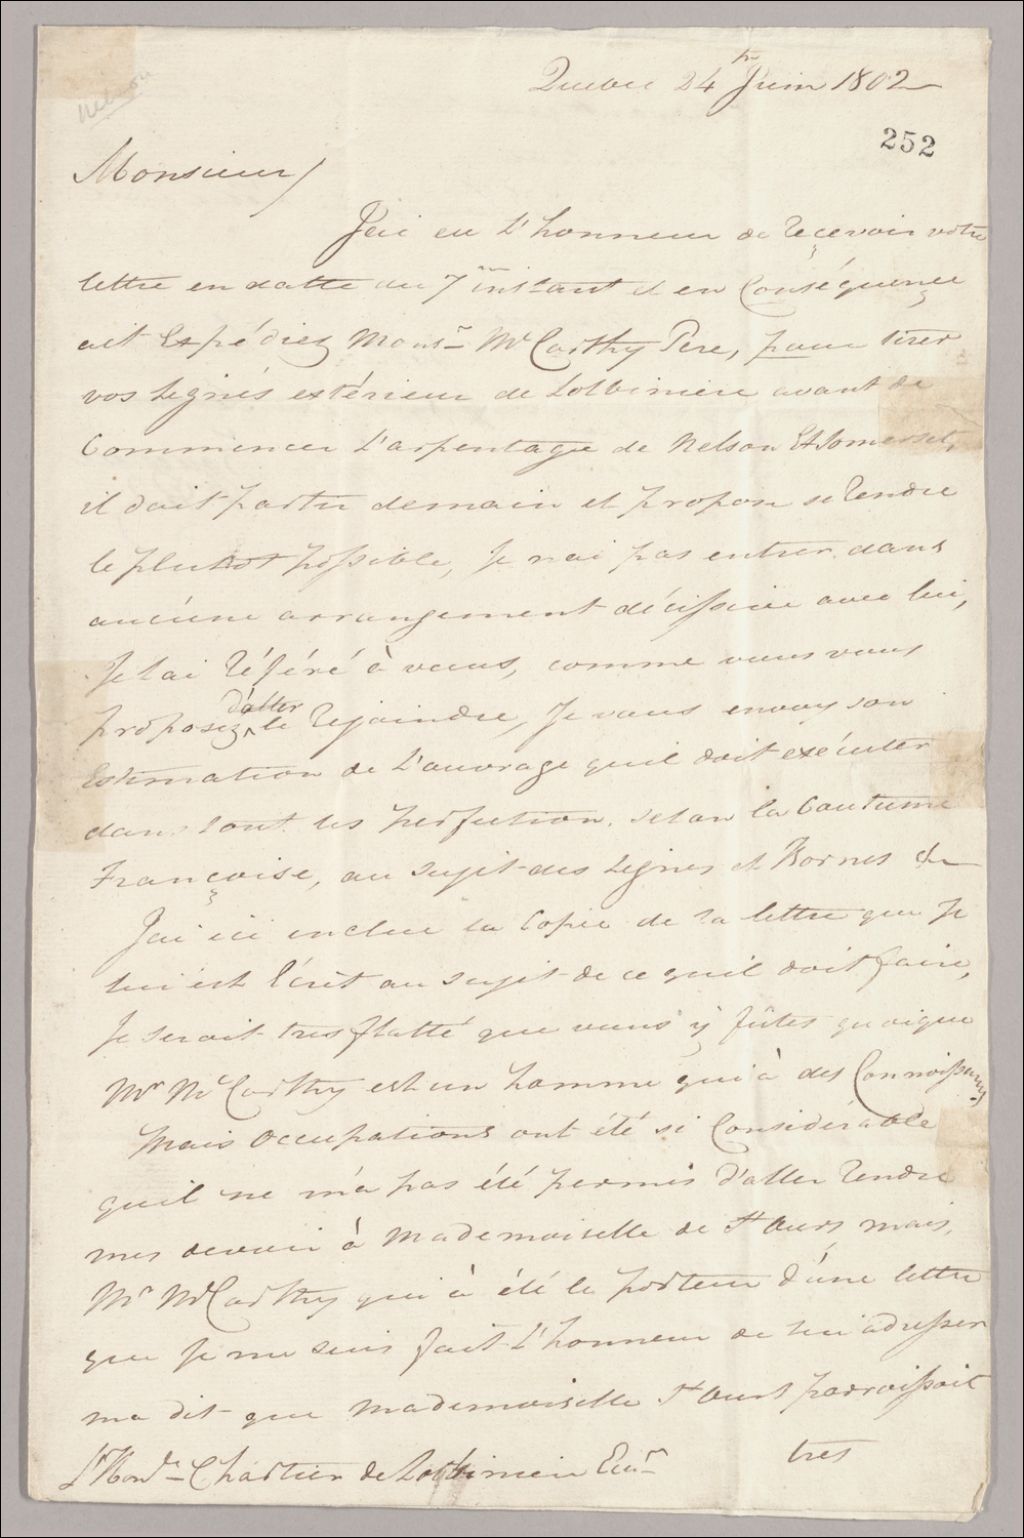 Quebec 24 Juin 1802
252
Nelson
Monsieur/
J'ai eu L'honneur de reçevoir votre
lettre en datte du 7me instant et en Conséquençe
ait Expédiez Monsr McCarthy Pere, pour tirer
vos Lignes extérieur de Lotbiniere avant de
Commencer L'arpentage de Nelson Et Somerset,
il doit partir demain et propose se rendre
le plutot possible, Je n'ai pas entrer dans
aucune arrangement décissive avec lui,
Je l'ai référé à vous, comme vous vous
proposez d'aller le rejoindre, Je vous envoy son
Estimation de L'ouvrage quil doit exécuter
dans tout les perfection, selon la Coutume
Françoise, au sujet des Lignes et Bornes &c
J'ai ici inclue la Copie de la lettre que Je
lui est Écrit au sujet de ce quil doit faire,
Je serait tres flatté que vous y fûtes quoique
Mr McCarthy est un homme qui à des Connoissances
Mais Occupations ont été si Considérable
quil ne m'a pas été permis d'aller rendre
mes devoir à Mademoiselle de St Ours, mais,
Mr McCarthy qui à été le porteur d'une lettre
que Je me suis fait L'honneur de lui adresser
ma dit que Mademoiselle St Ours parroissoit
tres
L'Honble Chartier de Lotbiniere Ecur